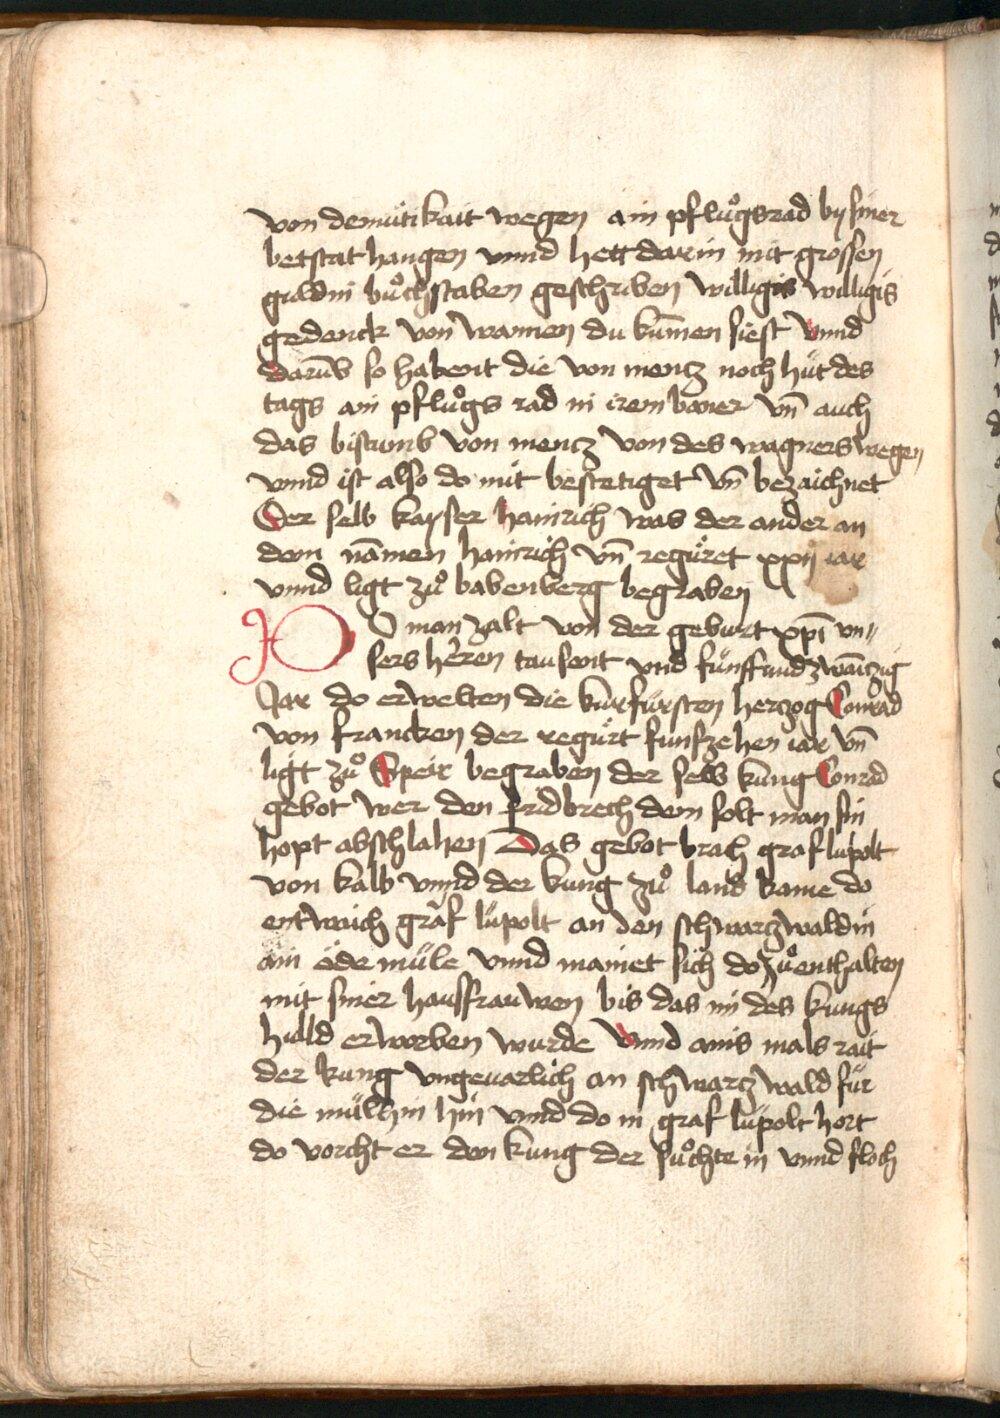 von demütikait wegen ain pflůgsrad by siner
betstat hangen vnnd hett darin mit grossen
guldin bůchstaben geschriben willigis willigis
gedenck von wannen du kumen siest vnnd
darūb so habent die von mentz noch hüt des
tags ain pflůgs rad in irem baner vn̄ auch
das bistumb von mentz von des wagners wegen
vnnd ist also do mit bestetiget vn̄ bezaichnet
Der selb kayser hainrich was der ander an
dem namen hainrich vn̄ regüret xxij iar
vnnd ligt zů babenberg begraben
DO man zalt von der geburt xp̄i vn⸗
sers heren tausent vnd fünffundzwaintzig
Jar do erwelten die kurfürsten hertzog Conrad
von francken der regürt funfzehen iar vn̄
ligt zů Speir begraben der selb kung Conrad
gebot wer den frid brech dem solt man sin
hopt abschlahen Das gebot brach graf lüpolt
von kalb vnnd der kung zů land kame do
entwaich graf lüpolt an den schwartzwald in
ain öde müle vnnd mainet sich do zů enthalten
mit siner haussfrauwen bis das im des kungs
huld erworben wurde vnnd ains mals rait
der kung vngeuarlich an schwartzwald für
die mülhin hin vnnd do in graf lüpolt hort
do vorcht er den kung der sůchte in vnnd floch